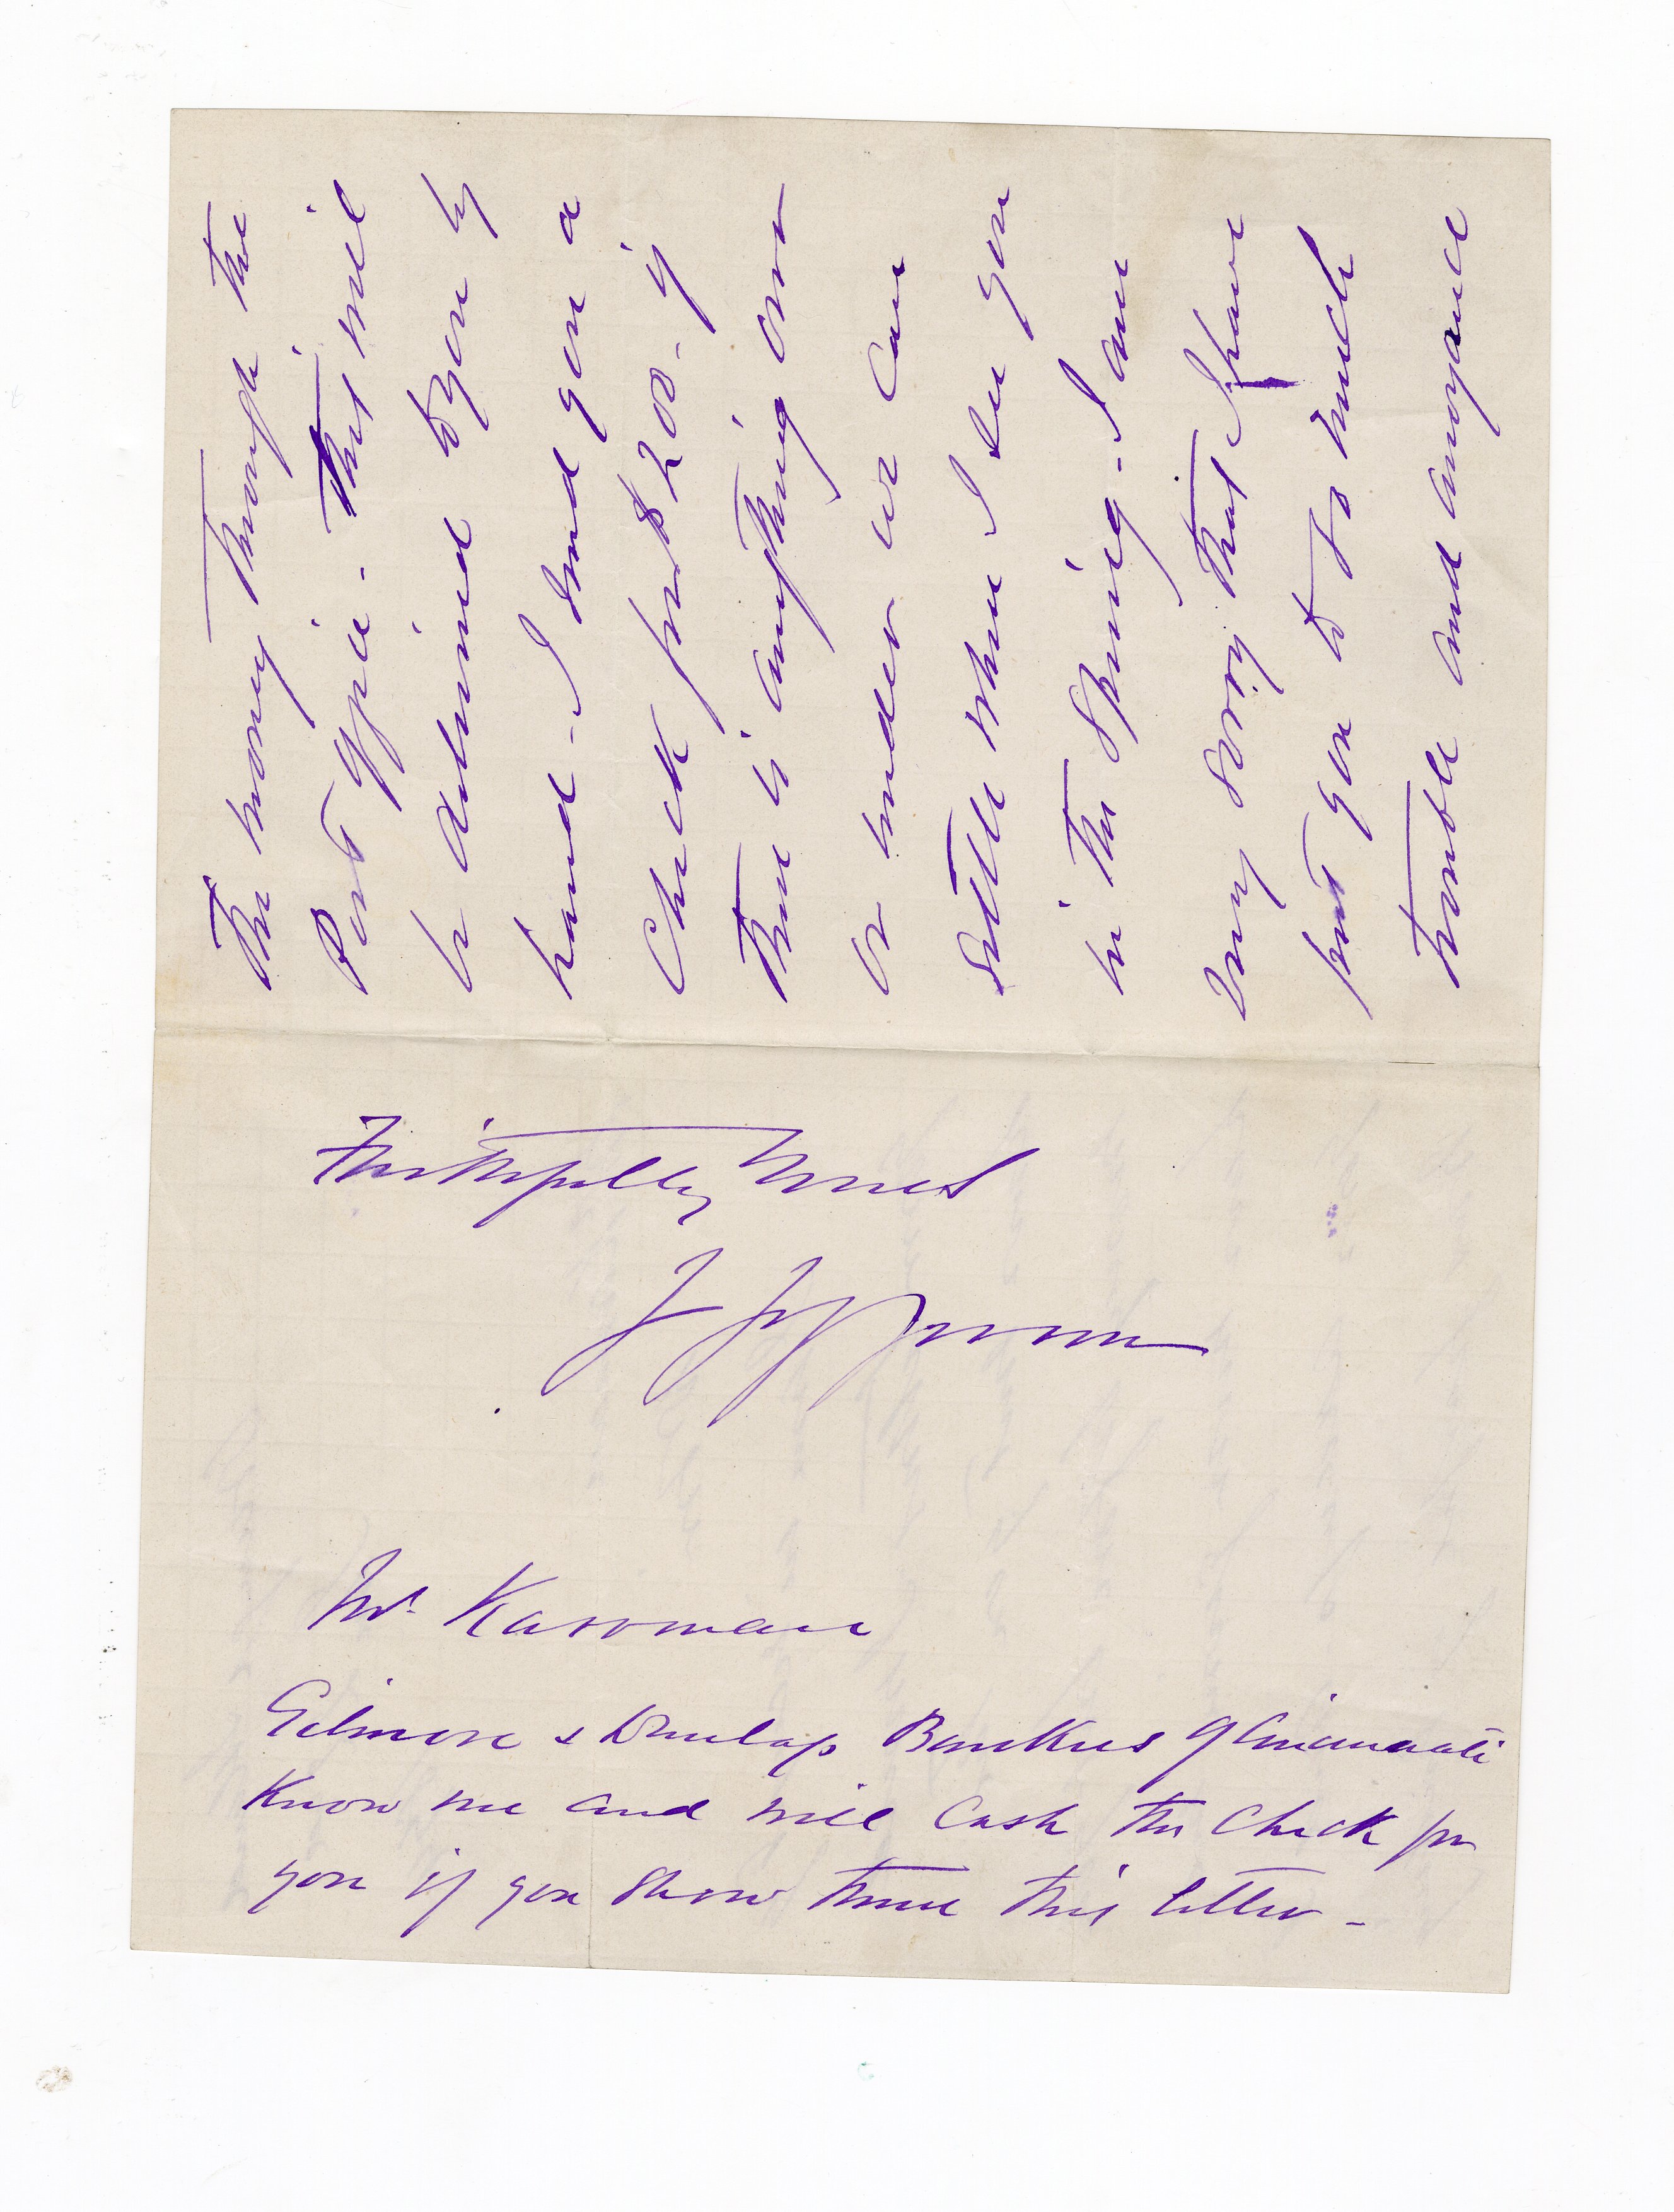 The money through the
Post Office. That will
be returned to you by
hand - I send you a
Check for $200 - if
There is anything over
or under we can
settle when I see you
in the Spring - I am
Very sorry that I have
put you to so much
trouble and annoyance
Faithfully Yours
Mr. Kassoman
Gilmore & Dunlap Bankers of Cincinnati
Know me and will Cash the Check for
you if you show them this letter -